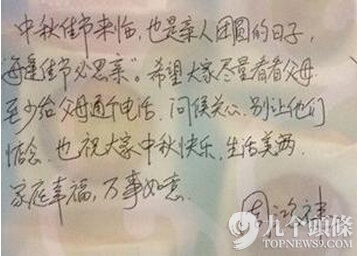 中秋佳节来临，也是亲人团圆的日子，
每逢佳节必思亲”。希望大家尽量看看父母
至少给父母通个电话，问候关心，别让他们
惦念。也祝大家中秋快乐，生活美满
家庭幸福，万事如意
九个頭條
TOPNEWS9.COM